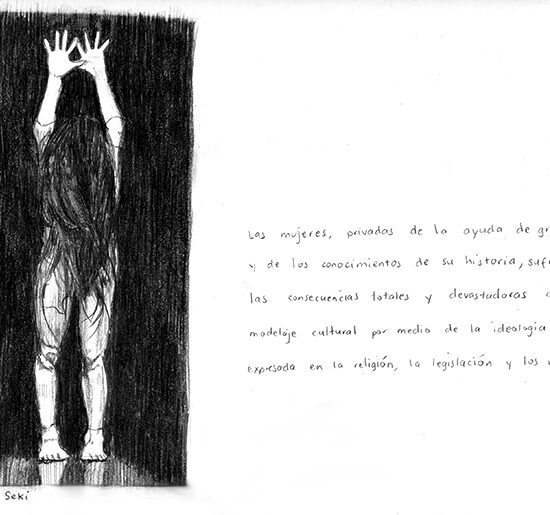 Las mujeres, privadas de la ayuda de gr
y de los conocimientos de su historia, sufr
las consecuencias totales y devastadoras d
modelaje cultural por medio de la ideología
expresada en la religión, la legislación y los
Seki